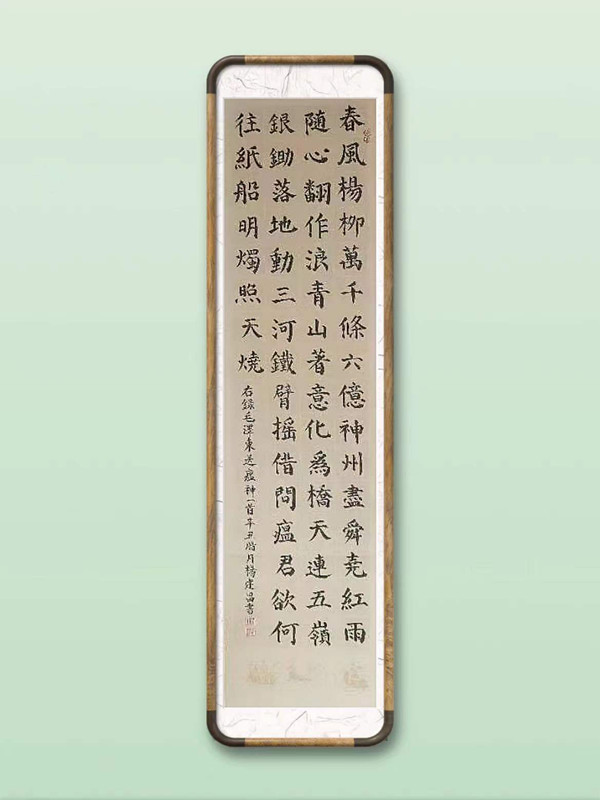 春風楊柳萬千條六億神州盡舜堯紅雨
隨心翻作浪青山著意化為橋天連五嶺
銀鋤落地動三河鐵臂搖借問瘟君欲何
往紙船明燭照天燒
右錄毛澤東送瘟神一首辛丑臘月楊建昌書